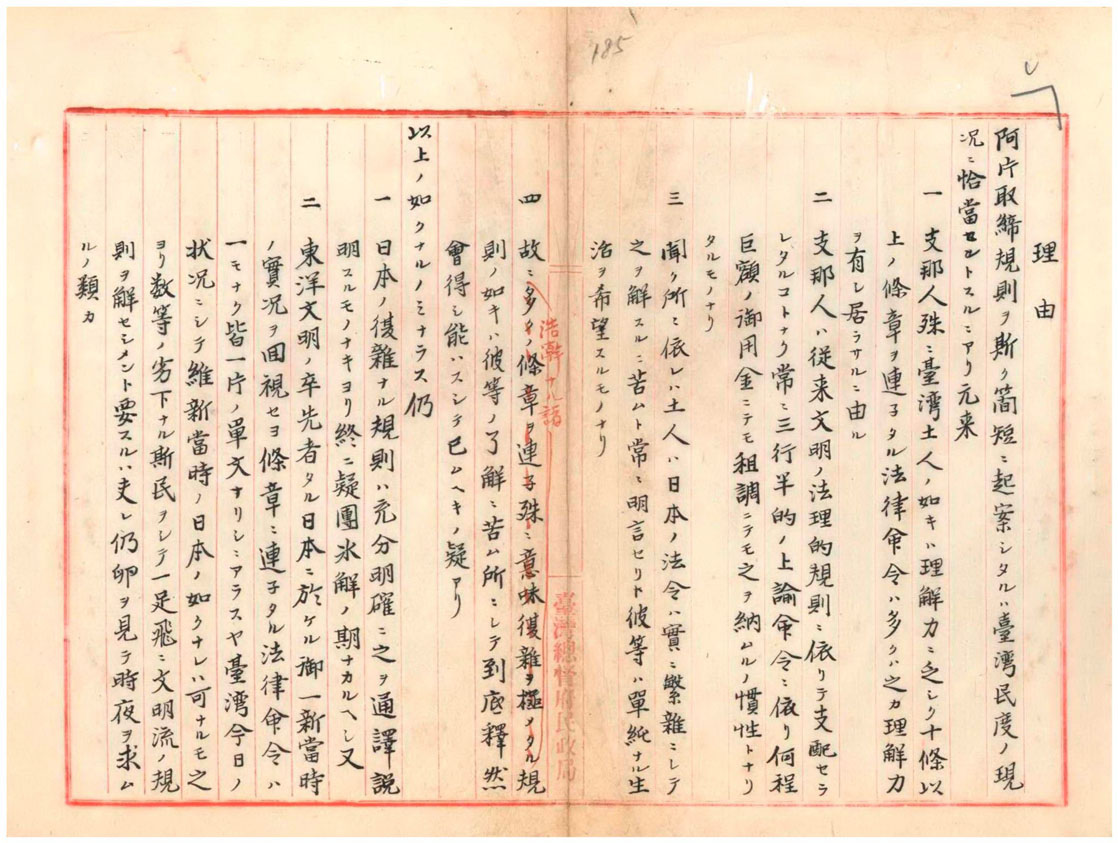 185
理由
阿片取締規則ヲ斯ク簡短ニ起案シタルハ臺湾民度ノ現
况ニ恰當セントスルニアリ元来
一 支那人殊ニ臺湾土人ノ如キハ理解力ニ乏シク十條以
上ノ條章ヲ連子タル法律命令ハ多クハ之カ理解力
ヲ有シ居ラサルニ由ル
二 支那人ハ従来文明ノ法理的規則ニ依リテ支配セラ
レタルコトナク常ニ三行半的ノ上論命令ニ依リ何程
巨額ノ御用金ニテモ租調ニテモ之ヲ納ムルノ慣性トナリ
タルモノナリ
三 聞ク所ニ依レハ土人ハ日本ノ法令ハ實ニ繁雜ニシテ
之ヲ解スルニ苦ムト常ニ明言セリト彼等ハ單純ナル生
治ヲ希望スルモノナリ
浩澣ナル語
臺灣總督府民政局
四 故ニ多々ノ條章ヲ連子殊ニ意味復雜ヲ極メタル規
則ノ如キハ彼等ノ了解ニ苦ム所ニシテ到底釋然
會得シ能ハスシテ已ムヘキノ疑アリ
以上ノ如クナルノミナラス仍
一 日本ノ復雜ナル規則ハ充分明確ニ之ヲ通譯説
明スルモノナキヨリ終ニ疑團氷解ノ期ナカルヘシ又
二 東洋文明ノ卒先者タル日本ニ於ケル御一新當時
ノ實况ヲ回視セヨ條章ニ連子タル法律命令ハ
一モナク皆一片ノ單文ナリシニアラスヤ臺湾今日ノ
状况ニシテ維新當時ノ日本ノ如クナレハ可ナルモ之
ヨリ数等ノ劣下ナル斯民ヲシテ一足飛ニ文明流ノ規
則ヲ解セシメント要スルハ夫レ仍卵ヲ見テ時夜ヲ求ム
ルノ類カ